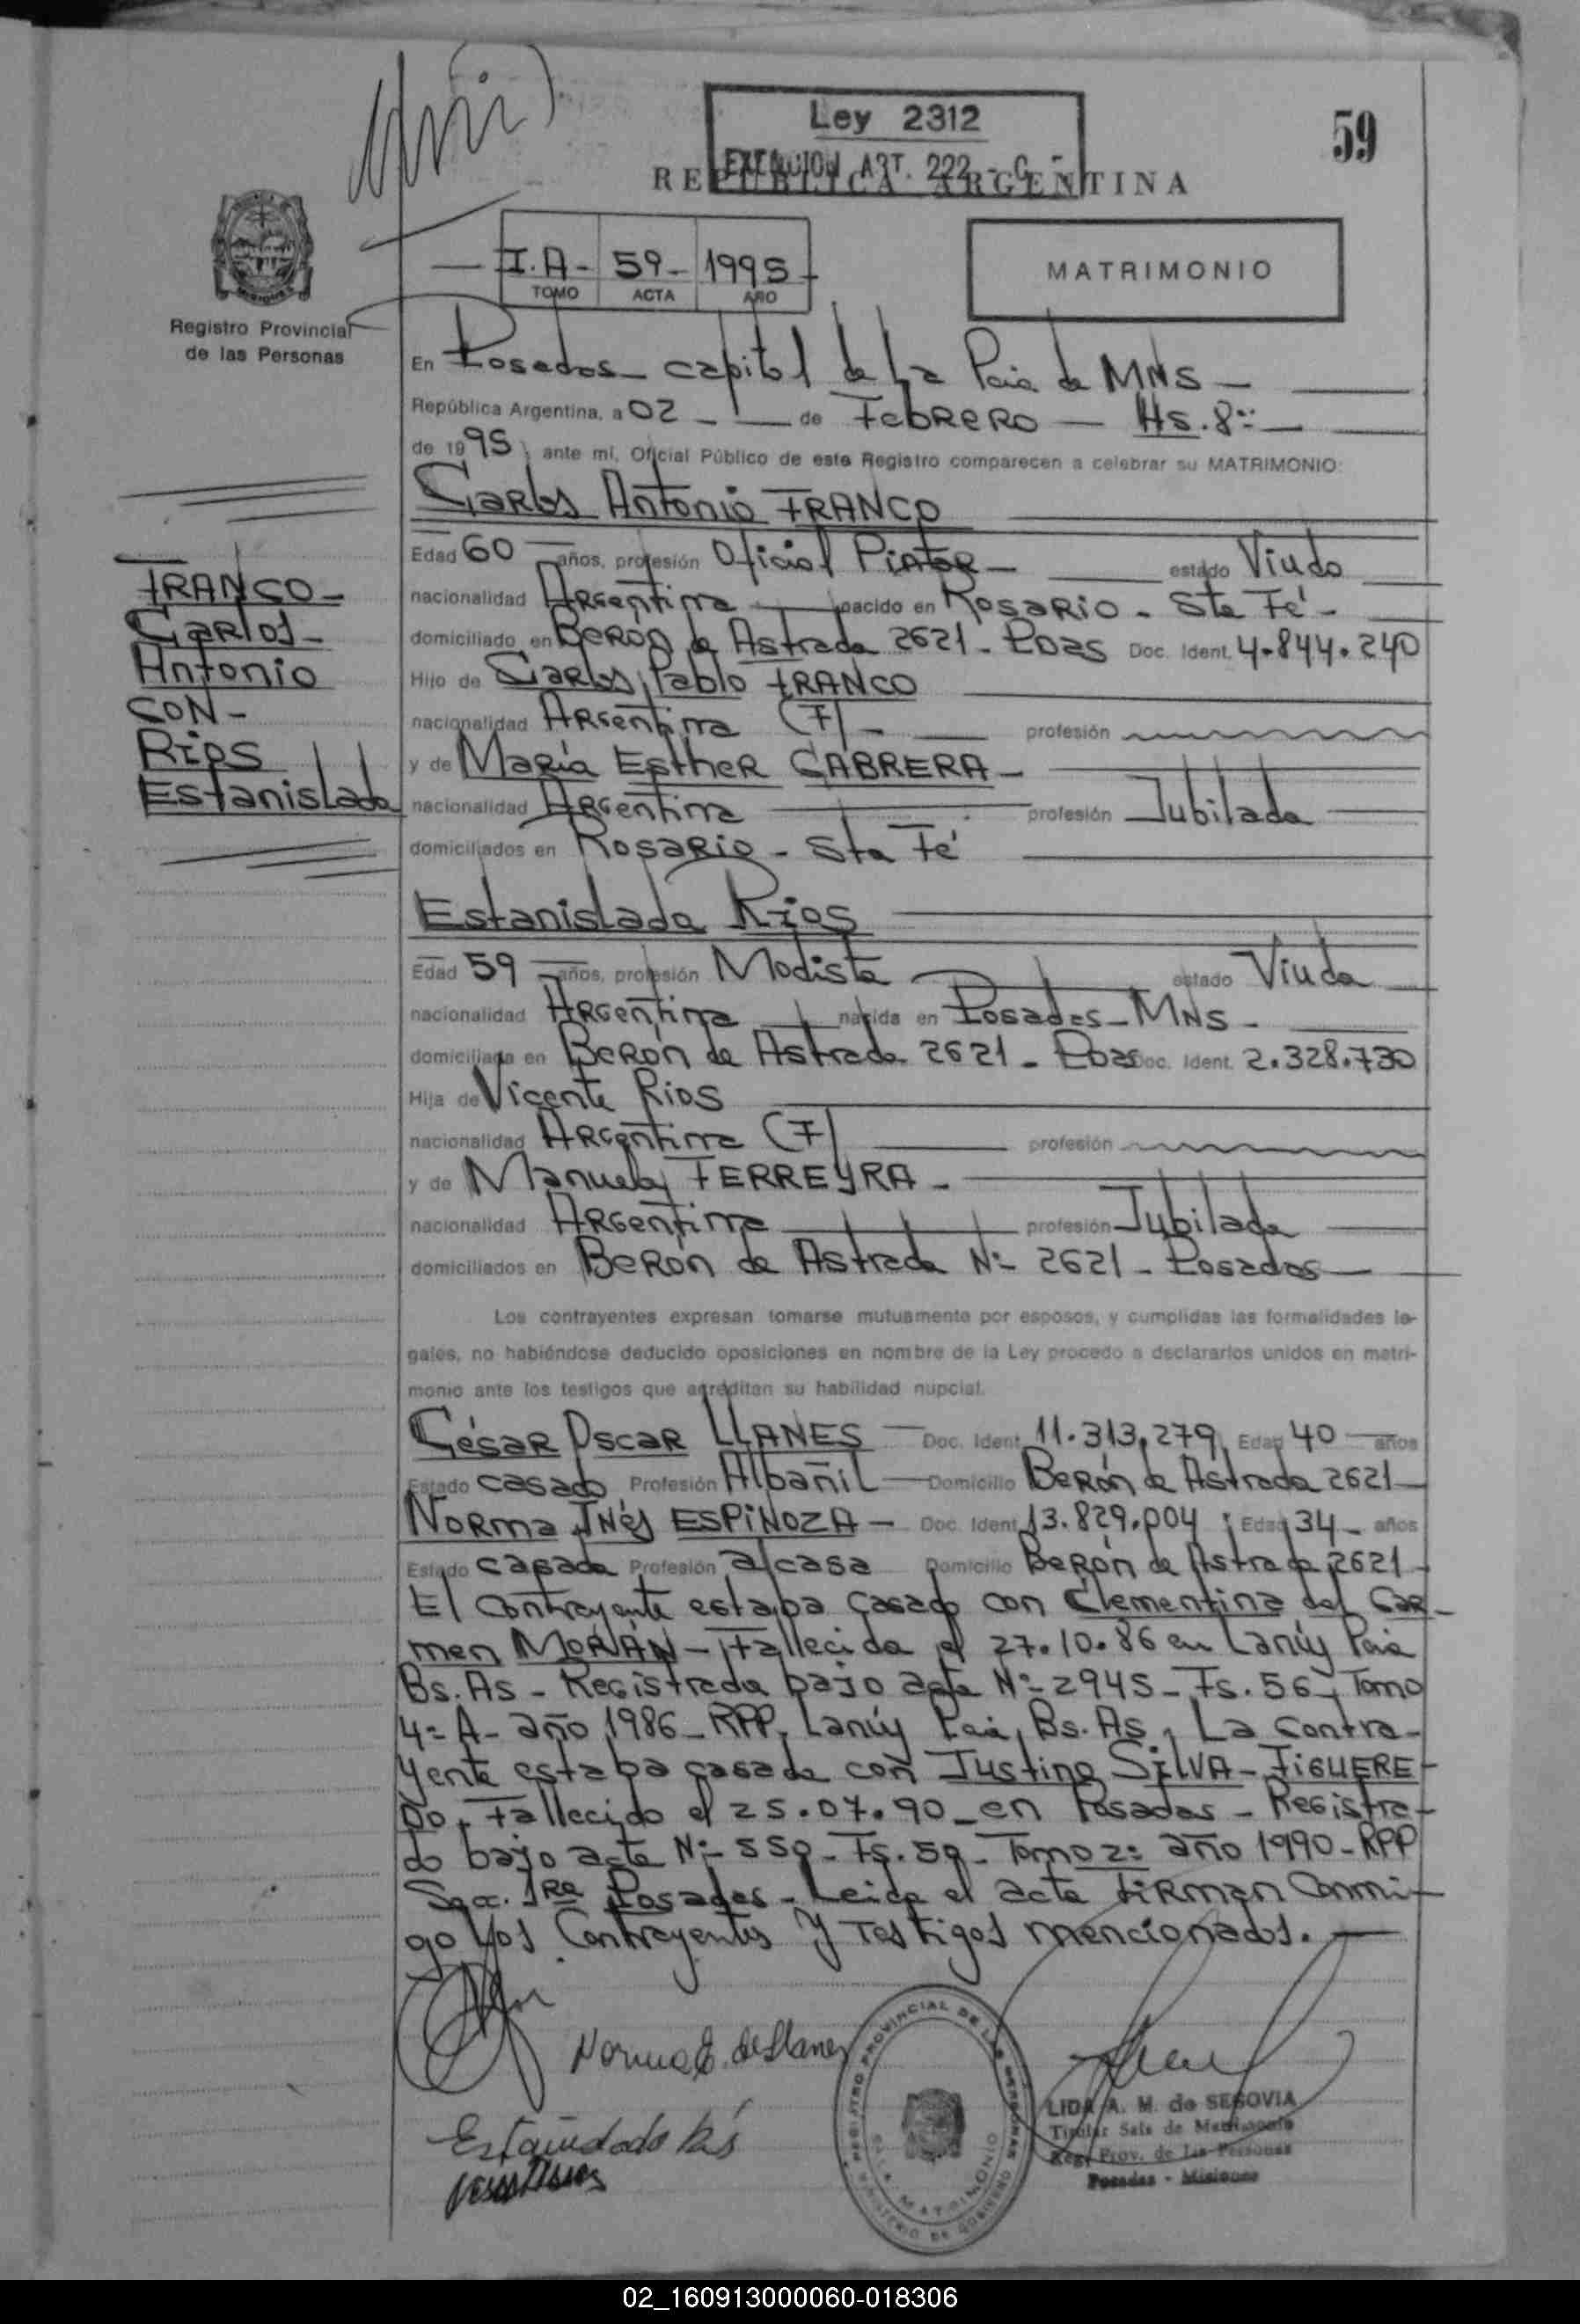 Ley 2312
EXENCION ART. 222 - C. -
59
REPUBLICA ARGENTINA
I.A- 59- 1995
TOMO ACTA AÑO
MATRIMONIO
Registro Provincial
de las Personas
En Posadas - capital de La Pcia de MNS -
República Argentina, a 02 - de FebRERO - Hs. 8:-
de 1995, ante mí, Oficial Público de este Registro comparecen a celebrar su MATRIMONIO:
Carlos Antonio FRANCO
Edad 60 años, profesión Oficial Pintor - estado Viudo
nacionalidad Argentina nacido en Rosario - Sta Fé -
domiciliado en Berón de Astrada 2621 - Pdas Doc. Ident. 4.844.240
Hijo de Carlos Pablo FRANCO
nacionalidad Argentina (F) - profesión
y de María Esther CABRERA -
nacionalidad Argentina profesión Jubilada
domiciliados en Rosario - Sta Fé
FRANCO -
Carlos -
Antonio
CON -
Rios
Estanislada
Estanislada Rios
Edad 59 años, profesión Modista estado Viuda
nacionalidad Argentina nacida en Posadas - MNS -
domiciliada en Berón de Astrada 2621 - Pdas Doc. Ident. 2.328.730
Hija de Vicente Rios
nacionalidad Argentina (F) profesión
y de Manuela FERREYRA -
nacionalidad Argentina profesión Jubilada
domiciliados en Berón de Astrada Nº 2621 - Posadas
Los contrayentes expresan tomarse mutuamente por esposos, y cumplidas las formalidades le-
gales, no habiéndose deducido oposiciones en nombre de la Ley procedo a declararlos unidos en matri-
monio ante los testigos que acreditan su habilidad nupcial.
César Oscar LLANES Doc. Ident. 11.313.279, Edad 40 años
Estado casado Profesión Albañil Domicilio Berón de Astrada 2621
Norma Inés ESPINOZA - Doc. Ident. 13.829.004; Edad 34 - años
Estado casada Profesión a/casa Domicilio Berón de Astrada 2621 -
El contrayente estaba casado con Clementina del Car-
men MORÁN - Fallecida el 27.10.86 en Lanús Pcia
Bs. As - Registrada bajo acta Nº 2945 - Fs. 56, Tomo
4º A - año 1986 - RPP, Lanús Pcia, Bs. As, La contra-
yente estaba casada con Justino SILVA - FIGUERE-
DO, Fallecido el 25.07.90 - en Posadas - Registra-
do bajo acta Nº 559 - Fs. 59 - Tomo 2º año 1990 - RPP
Secc. 1Ra Posadas - Leida el acta firman Conmi-
go los Contrayentes y Testigos mencionados. -
Norma E. de Llanes
Estanislada Ríos
REGISTRO PROVINCIAL DE LAS PERSONAS
SALA MATRIMONIO
MINISTERIO DE GOBIERNO
LIDA A. M. de SEGOVIA
Titular Sala de Matrimonio
Reg. Prov. de las Personas
Posadas - Misiones
02_160913000060-018306